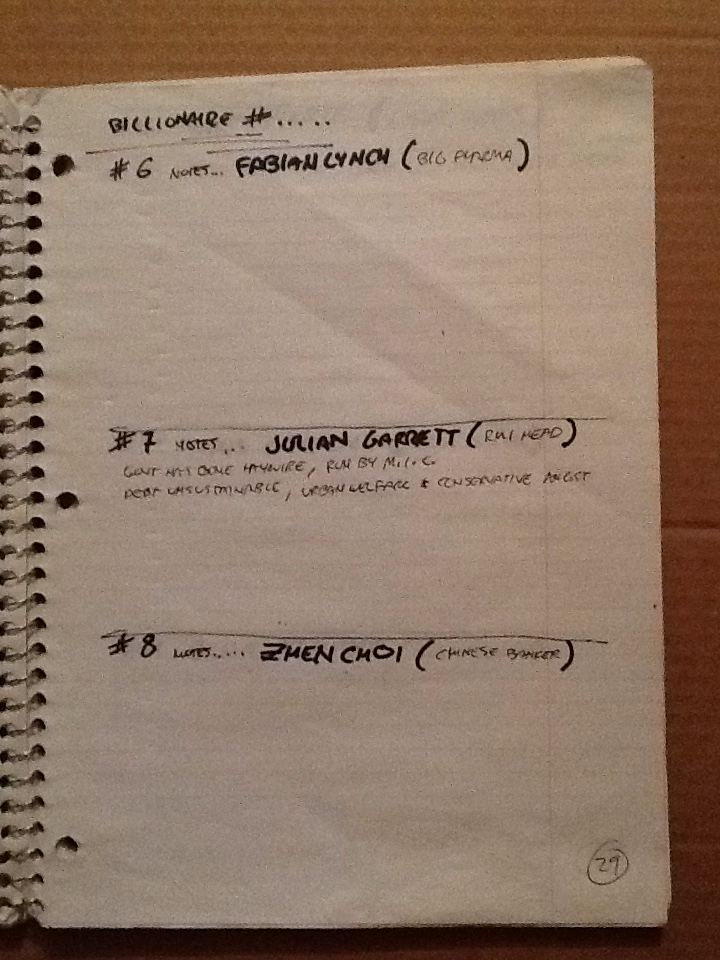 BILLIONAIRE #.....
#6 NOTES... FABIAN LYNCH (BIG PHRMA)
#7 NOTES... JULIAN GARRETT (RWI HEAD)
GOVT HAS GONE HAYWIRE, RUN BY M.I.C.
DEBT UNSUSTAINABLE, URBAN WELFARE & CONSERVATIVE ANGST
#8 NOTES..... ZHEN CHOI (CHINESE BANKER)
29